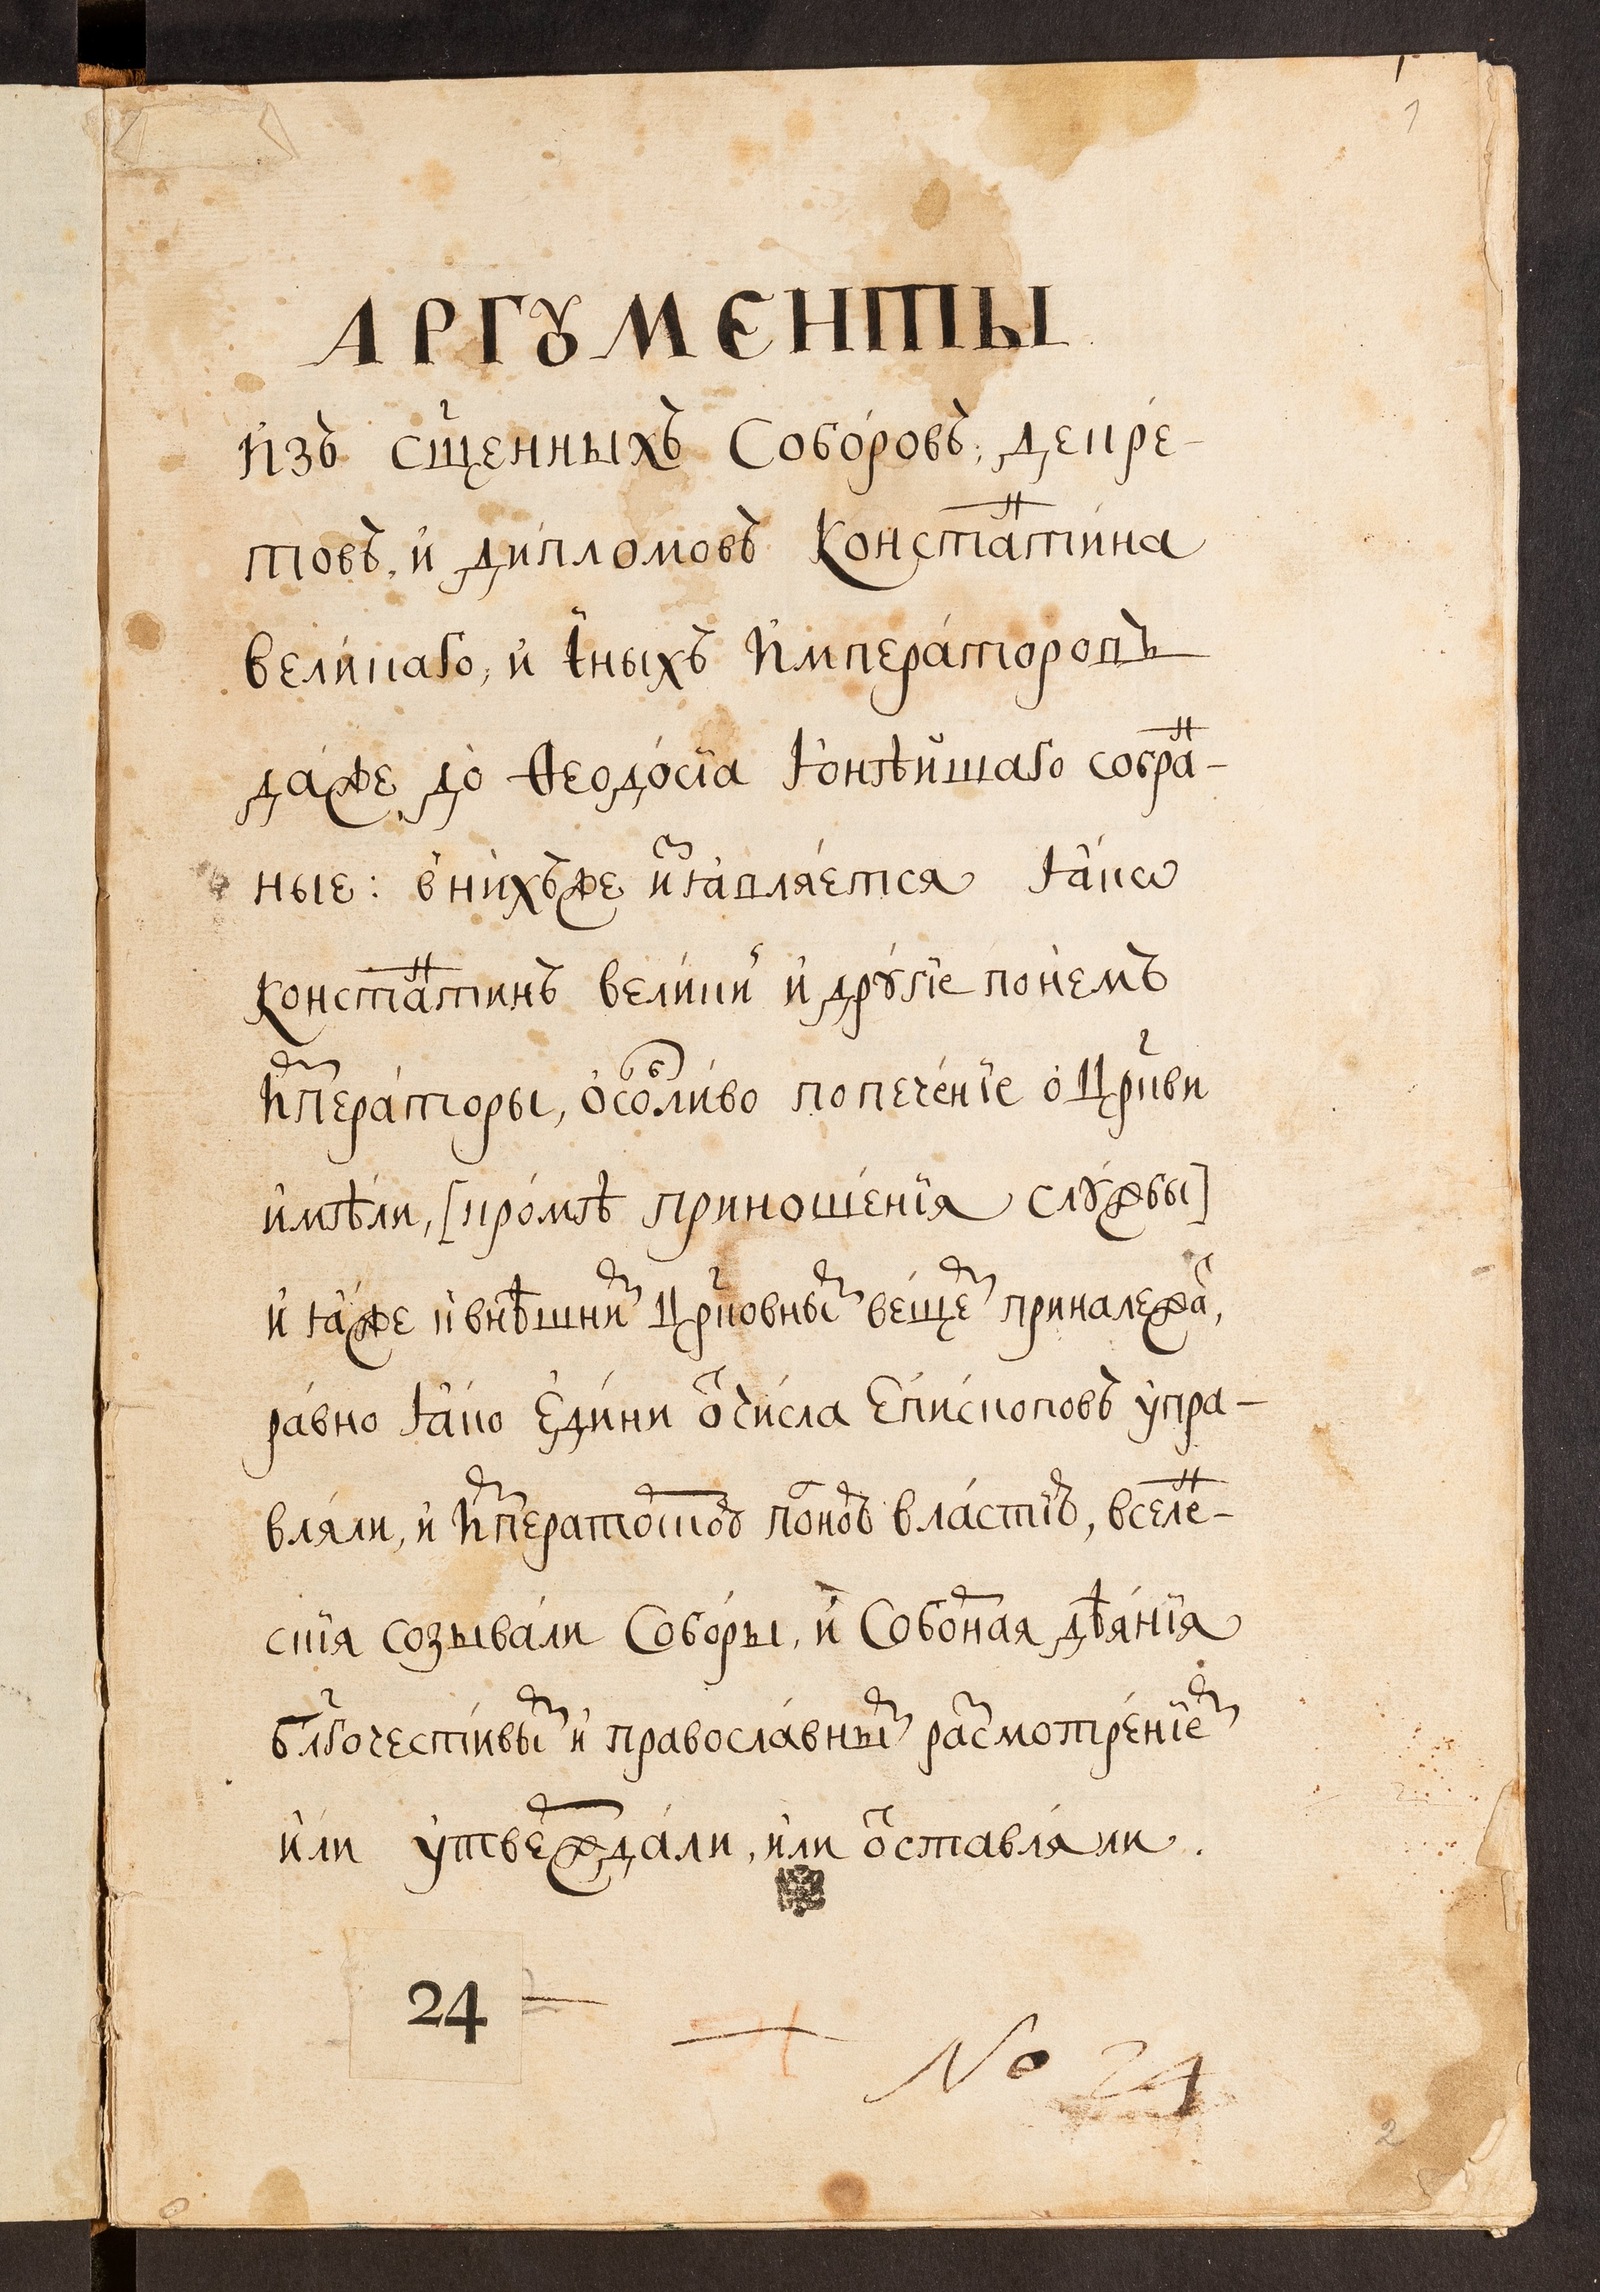 1
АРГꙊМЕНТЫ
И҆зъ сщ҃енныхъ Собо́ровъ, декре́-
товъ, и҆ ди́пломовъ Констаⷩ҇ті́на
вели́каго, и҆ і҆ныхъ И҆мпера́торовъ
да́же до̀ Ѳеодо́сїа Ю҆нѣйшаго собраⷩ҇-
ные: в̾ ни́хъже и҆ꙗⷡ҇вля́ется ꙗ҆́кѡ
Констаⷩ҇тинъ вели́кий и҆ дрꙋ́гїе по не́мъ
И҆ⷨпера́торы, ѻ҆со́ⷠли́во попече́нїе о҆ Цр҃кви
и҆мѣ́ли, [кро́мѣ приноше́нїя слꙋ́жбы]
и҆ ꙗ҆́же к̾ внѣ́шниⷨ Цр҃ковныⷨ ве́щеⷨ приналежа́ⷮ,
ра́вно ꙗ҆́ко Е҆ди́ни ѿ чи́сла Е҆пи́скоповъ ᲂу҆пра-
вля́ли, и҆ И҆ⷨператоⷬскою по́ноⷧ вла́стїю, вселеⷩ҇-
скїя созыва́ли Собо́ры, и҆ Собоⷬ́ная дѣѧ́нїя
бл҃гочести́выⷨ и҆ правосла́вныⷨ раⷥсмотре́нїеⷨ
и҆́ли ᲂу҆твеⷬжда́ли, и҆́ли ѻ҆ставля́ли.
24
№ 24
2